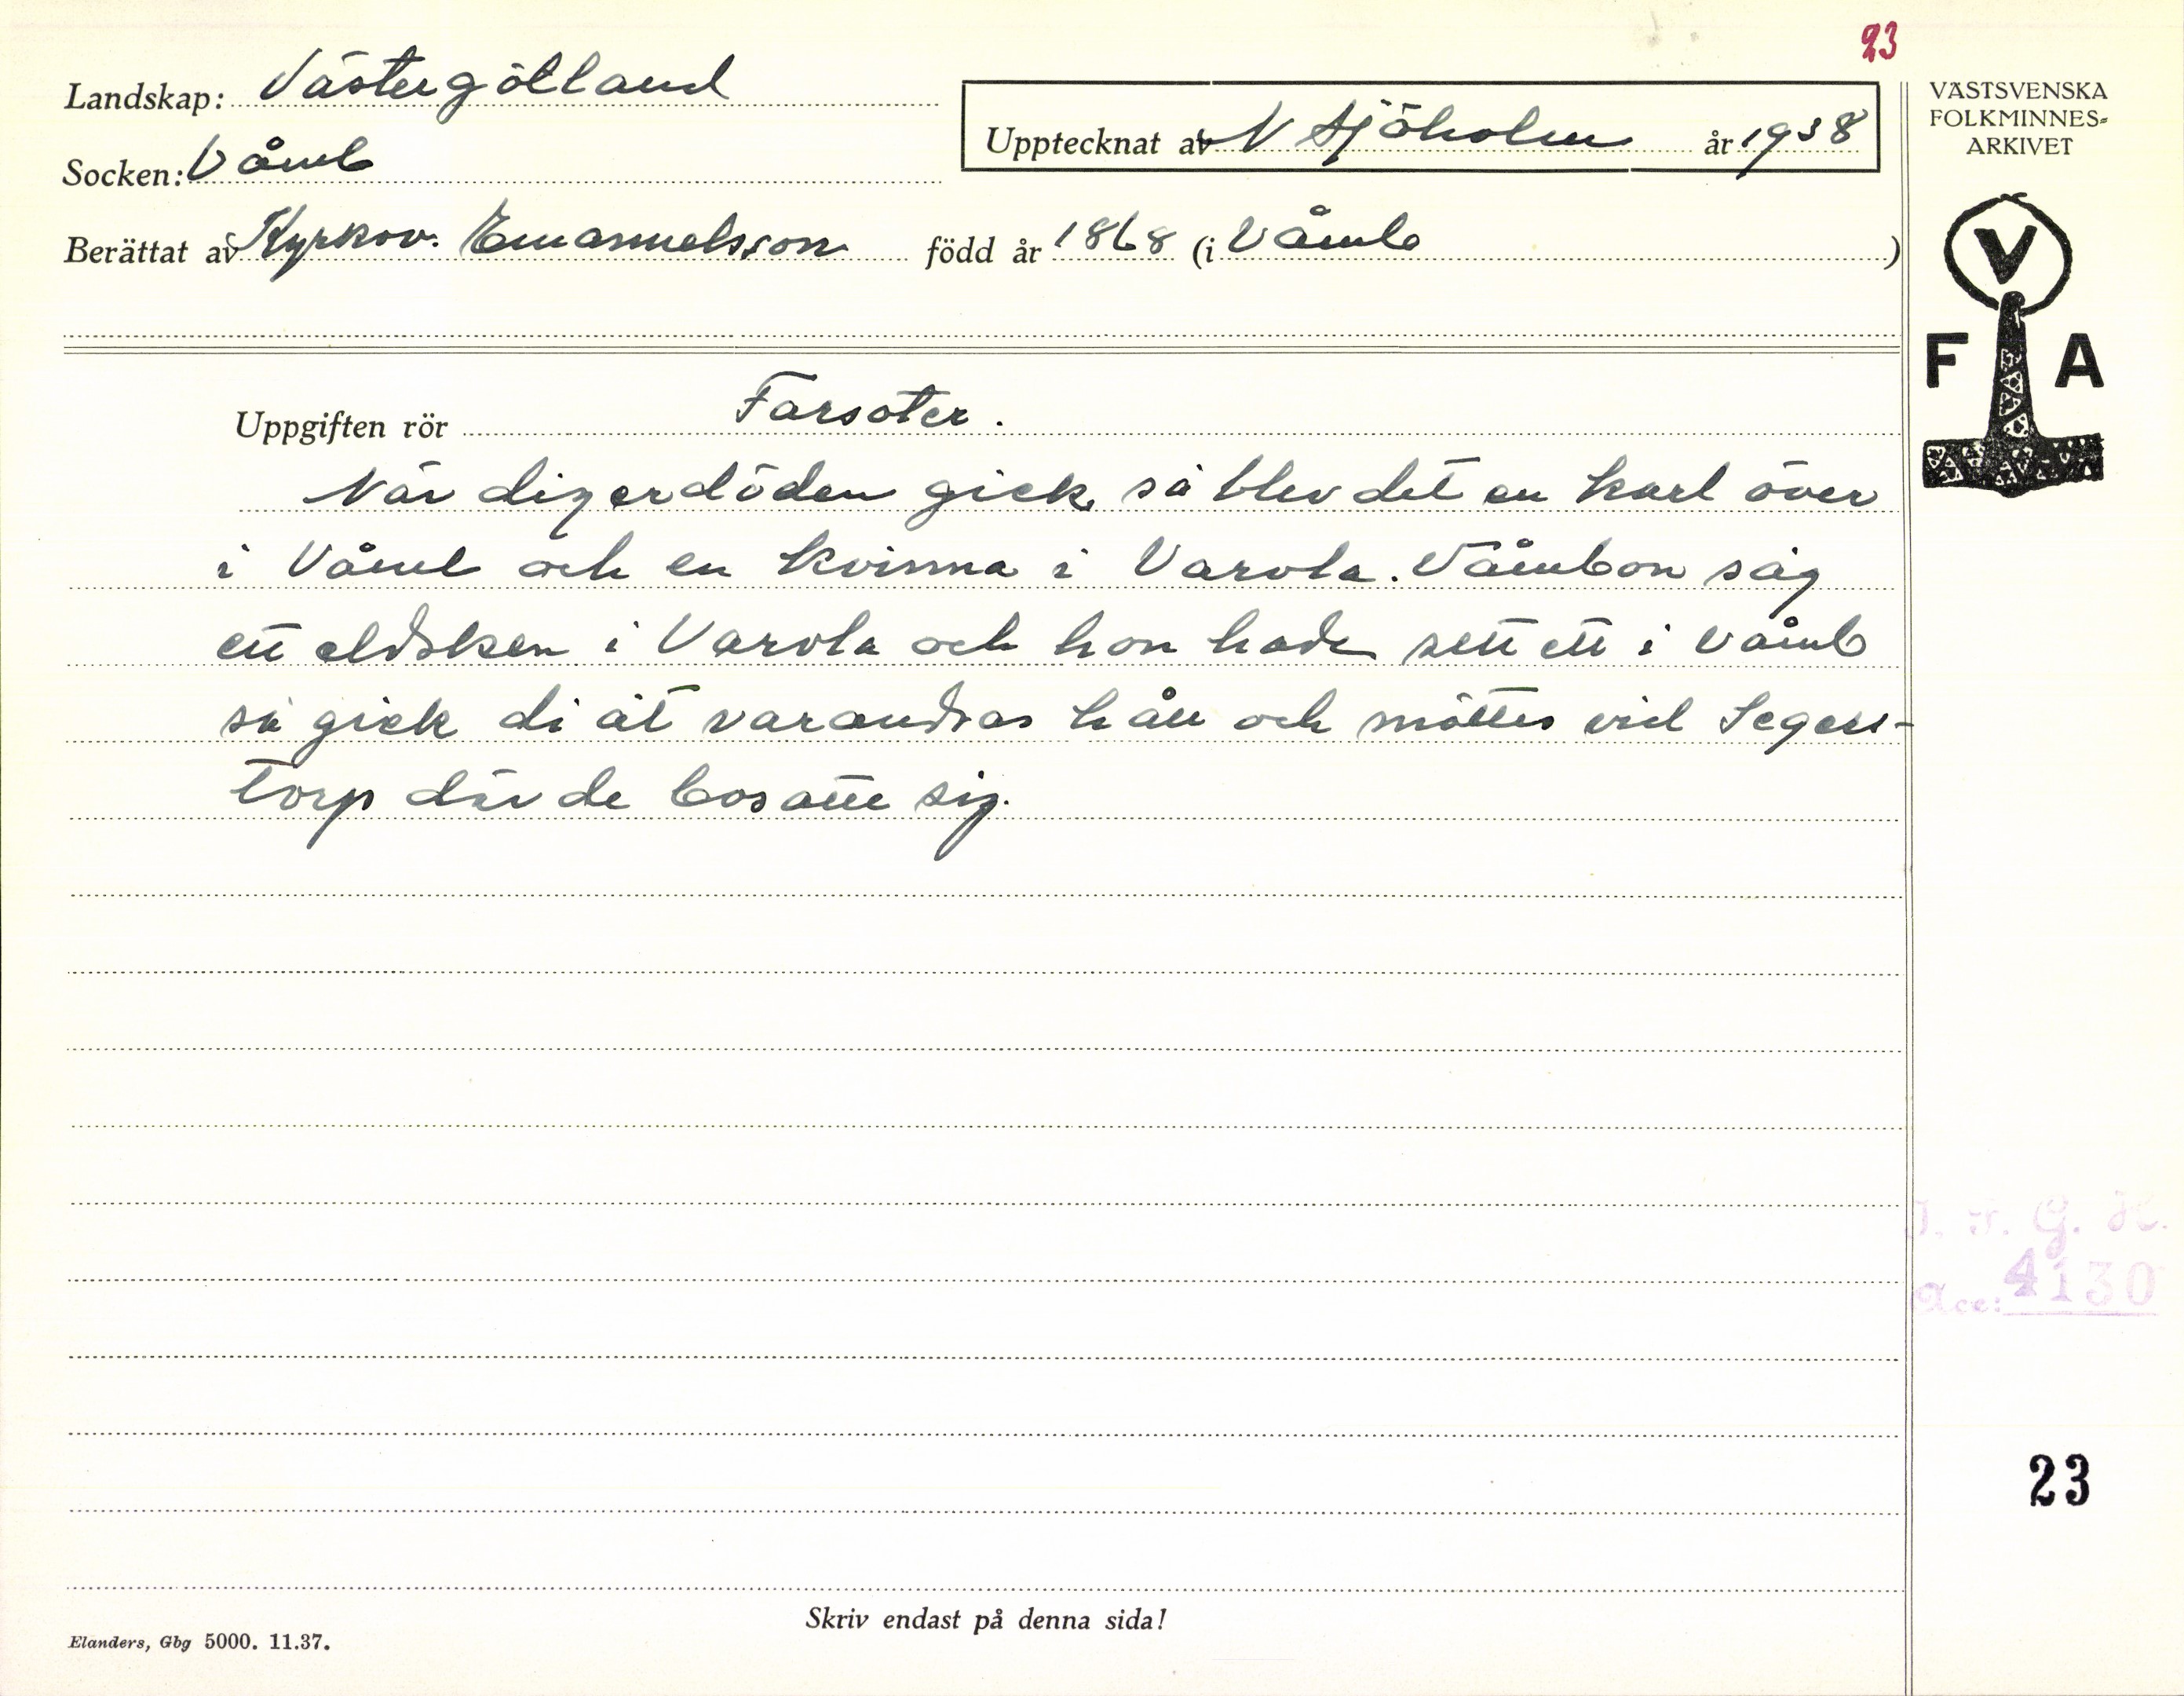 23
Landskap: Västergötland
Upptecknat av N Sjöholm år 1938
VÄSTSVENSKA
FOLKMINNES-
ARKIVET
Socken: Våmb
Berättat av Kyrkov. Emanuelsson född år 1868 (i Våmb)
V
F A
Uppgiften rör Farsoter.
När digerdöden gick så blev det en karl över
i Våmb och en kvinna i Varola. Våmbon såg
ett eldsken i Varola och hon hade sett ett i Våmb
så gick di åt varandras håll och möttes vid Segers-
torp där de bosatte sig.
I. F. G. H.
Acc: 4130
23
Skriv endast på denna sida!
Elanders, Gbg 5000. 11.37.